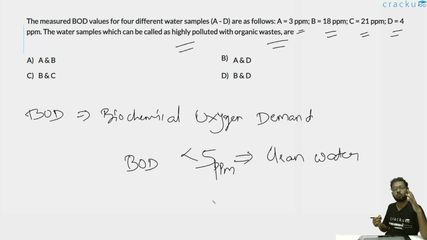 cracku
The measured BOD values for four different water samples (A - D) are as follows: A = 3 ppm; B = 18 ppm; C = 21 ppm; D = 4
ppm. The water samples which can be called as highly polluted with organic wastes, are
A) A & B
B) A & D
C) B & C
D) B & D
BOD ⇒ Biochemical Oxygen Demand
BOD < 5 ppm ⇒ Clean water